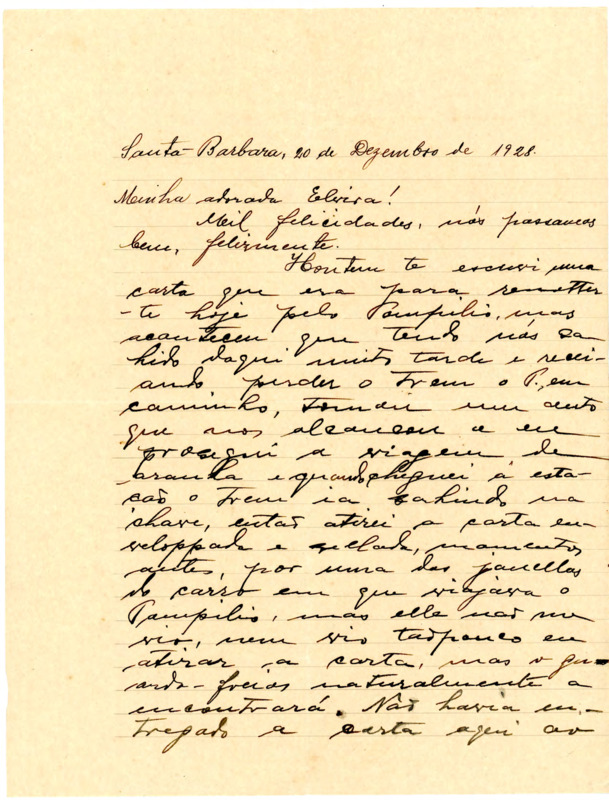 Santa-Barbara, 20 de Dezembro de 1928.
Minha adorada Elvira!
Mil felicidades, nós passamos
bem, felizmente.
Hontem te escrevi uma
carta que era para remetter
-te hoje pelo Pompilio, mas
aconteceu que tendo nós sa-
hido daqui muito tarde e recei-
ando perder o trem o P., em
caminho, tomou um auto
que nos alcançou e eu
prosegui a viagem de
aranha e quando cheguei á esta-
cão o trem ia sahindo na
chave, então atirei a carta en-
veloppada e sellada, momentos
antes, por uma das janellas
do carro em que viajava o
Pompilio, mas elle não me
vio, nem vio tão pouco eu
atirar a carta, mas o gu-
arda-freios naturalmente a
encontrará. Não havia en-
tregado a carta aqui ao